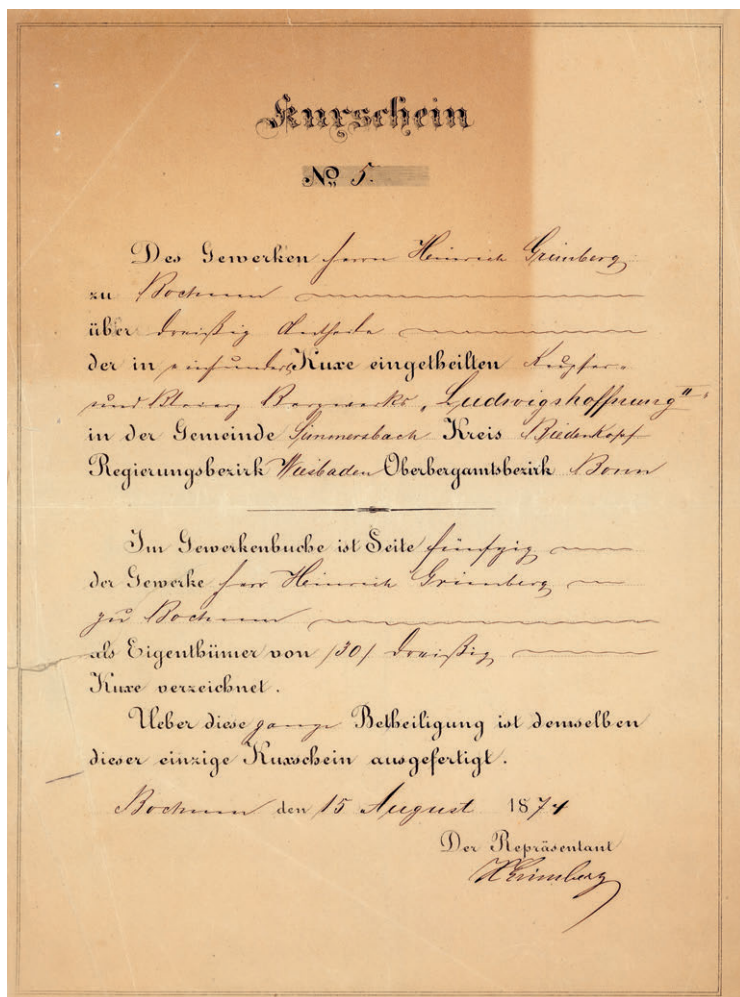 Kuxschein
No 5.
Des Gewerken Herrn Heinrich Grimberg
zu Bochum
über dreißig Antheile
der in einhundert Kuxe eingetheilten Kupfer-
und Bleierz Bergwerks „Ludwigshoffnung"
in der Gemeinde Simmersbach Kreis Biedenkopf
Regierungsbezirk Wiesbaden Oberbergamtsbezirk Bonn
Im Gewerkenbuche ist Seite fünfzig
der Gewerke Herr Heinrich Grimberg
zu Bochum
als Eigenthümer von /30/ dreißig
Kuxe verzeichnet.
Ueber diese ganze Betheiligung ist demselben
dieser einzige Kuxschein ausgefertigt.
Bochum den 15 August 1874
Der Repräsentant
HGrimberg